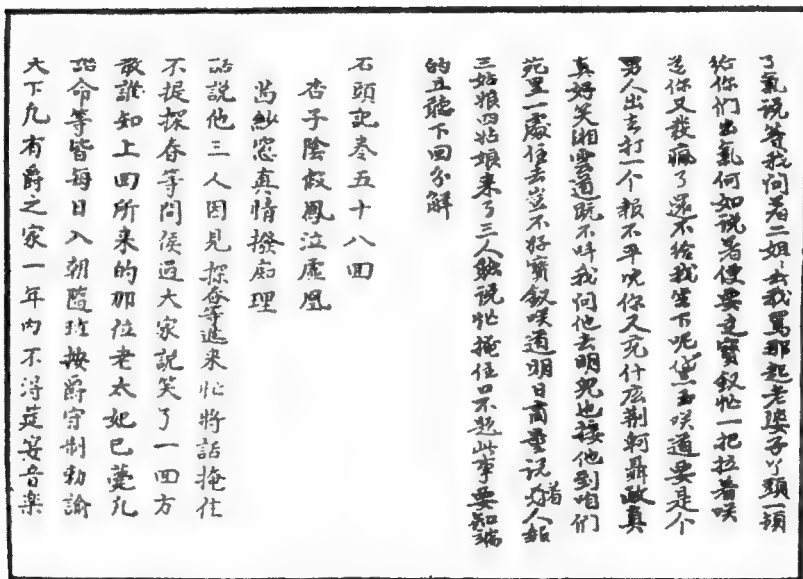 了氣说等我问着二姐:去我罵那起老婆子丫頭一頓
给你们出氣何如说着便要走寳釵忙一把拉着咲
道你又發瘋了還不给我坐下呢黛玉咲道要是个
男人出去打一个報不平児你又充什庅荆軻聶政真
真好笑湘雲道既不呌我问他去明児也接他到咱们
苑里一處住去豈不好寳釵咲道明日商量说着人報
三姑娘四姑娘来了三人聴说忙掩住口不题此事要知端
的且聽下回分解
石頭記巻五十八回
杏子陰假鳳泣虛凰
茜紗窓真情撥痴理
話説他三人因見探春等進来忙將話掩住
不提探春等問候過大家説笑了一回方
散誰如上回所来的那位老太妃已薨凡
誥命等皆每日入朝隨班按爵守制勅諭
天下凢有爵之家一年内不淂筵宴音樂